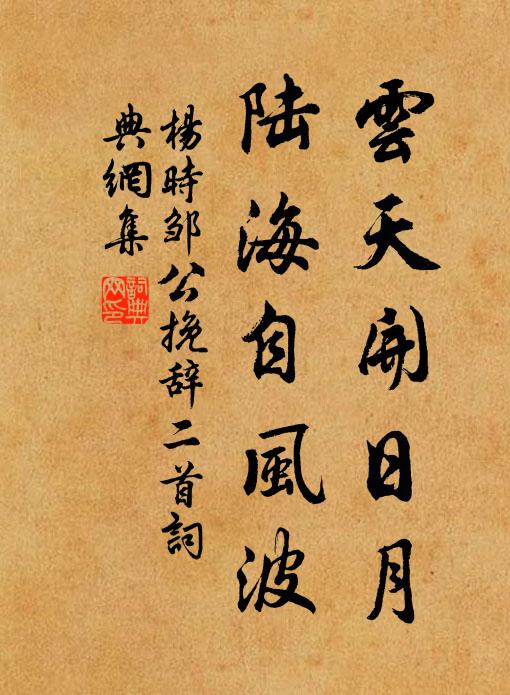 雲天開日月
陆海自風波
楊時邹公挽辞二首詞
典網集
詞典
网印